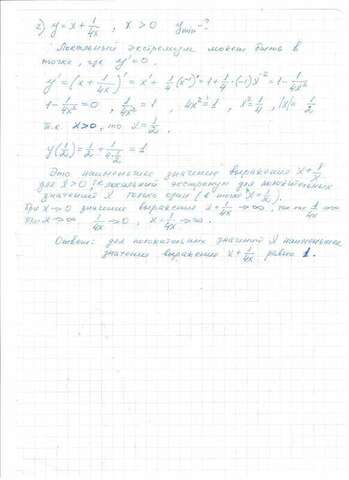 2) y = x + 1/4x , x > 0 y min - ?
Локальный экстремум может быть в
точке, где y' = 0.
y' = (x + 1/4x)' = x' + 1/4 (x⁻¹)' = 1 + 1/4 · (-1) x⁻² = 1 - 1/4x²
1 - 1/4x² = 0 , 1/4x² = 1 , 4x² = 1 , x² = 1/4 , |x| = 1/2
Т.к. x > 0, то x = 1/2.
y(1/2) = 1/2 + 1/4·1/2 = 1
Это наименьшее значение выражения x + 1/4x
для x > 0, локальный экстремум для положительных
значений x только один (в точке x = 1/2).
При x → 0 значение выражения x + 1/4x → ∞, 1/4x → ∞
При x → ∞ 1/4x → 0 , x + 1/4x → ∞.
Ответ: для положительных значений x наименьшее
значение выражения x + 1/4x равно 1.